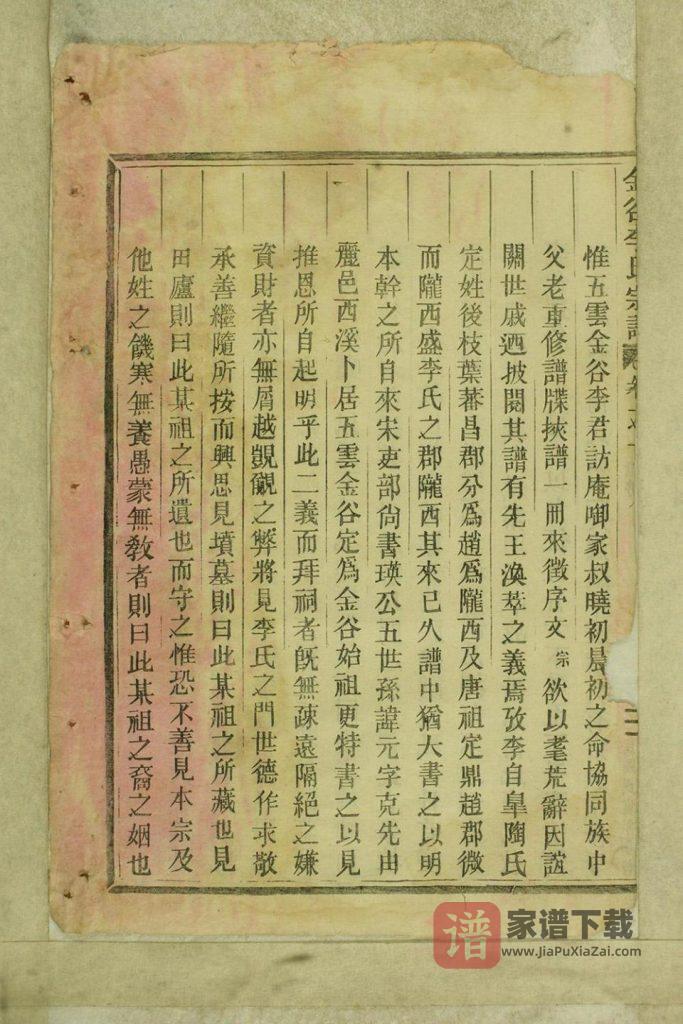 金谷李氏宗譜 卷之
惟五雲金谷李君訪庵啣家叔曉初晨初之命協同族中
父老重修譜牒挾譜一冊來徵序文宗欲以耄荒辭因誼
關世戚迺披閱其譜有先王渙萃之義焉攷李自皐陶氏
定姓後枝葉蕃昌郡分爲趙爲隴西及唐祖定鼎趙郡微
而隴西盛李氏之郡隴西其來已久譜中猶大書之以明
本幹之所自來宋吏部尙書瑛公五世孫諱元字克先由
麗邑西溪卜居五雲金谷定爲金谷始祖更特書之以見
推恩所自起明乎此二義而拜祠者旣無疎遠隔絕之嫌
資財者亦無屑越覬覦之弊將見李氏之門世德作求敬
承善繼隨所按而興思見墳墓則曰此某祖之所藏也見
田廬則曰此某祖之所遺也而守之惟恐不善見本宗及
他姓之饑寒無養愚蒙無敎者則曰此某祖之裔之姻也
谱 家谱下载
www.JiaPuXiaZai.com